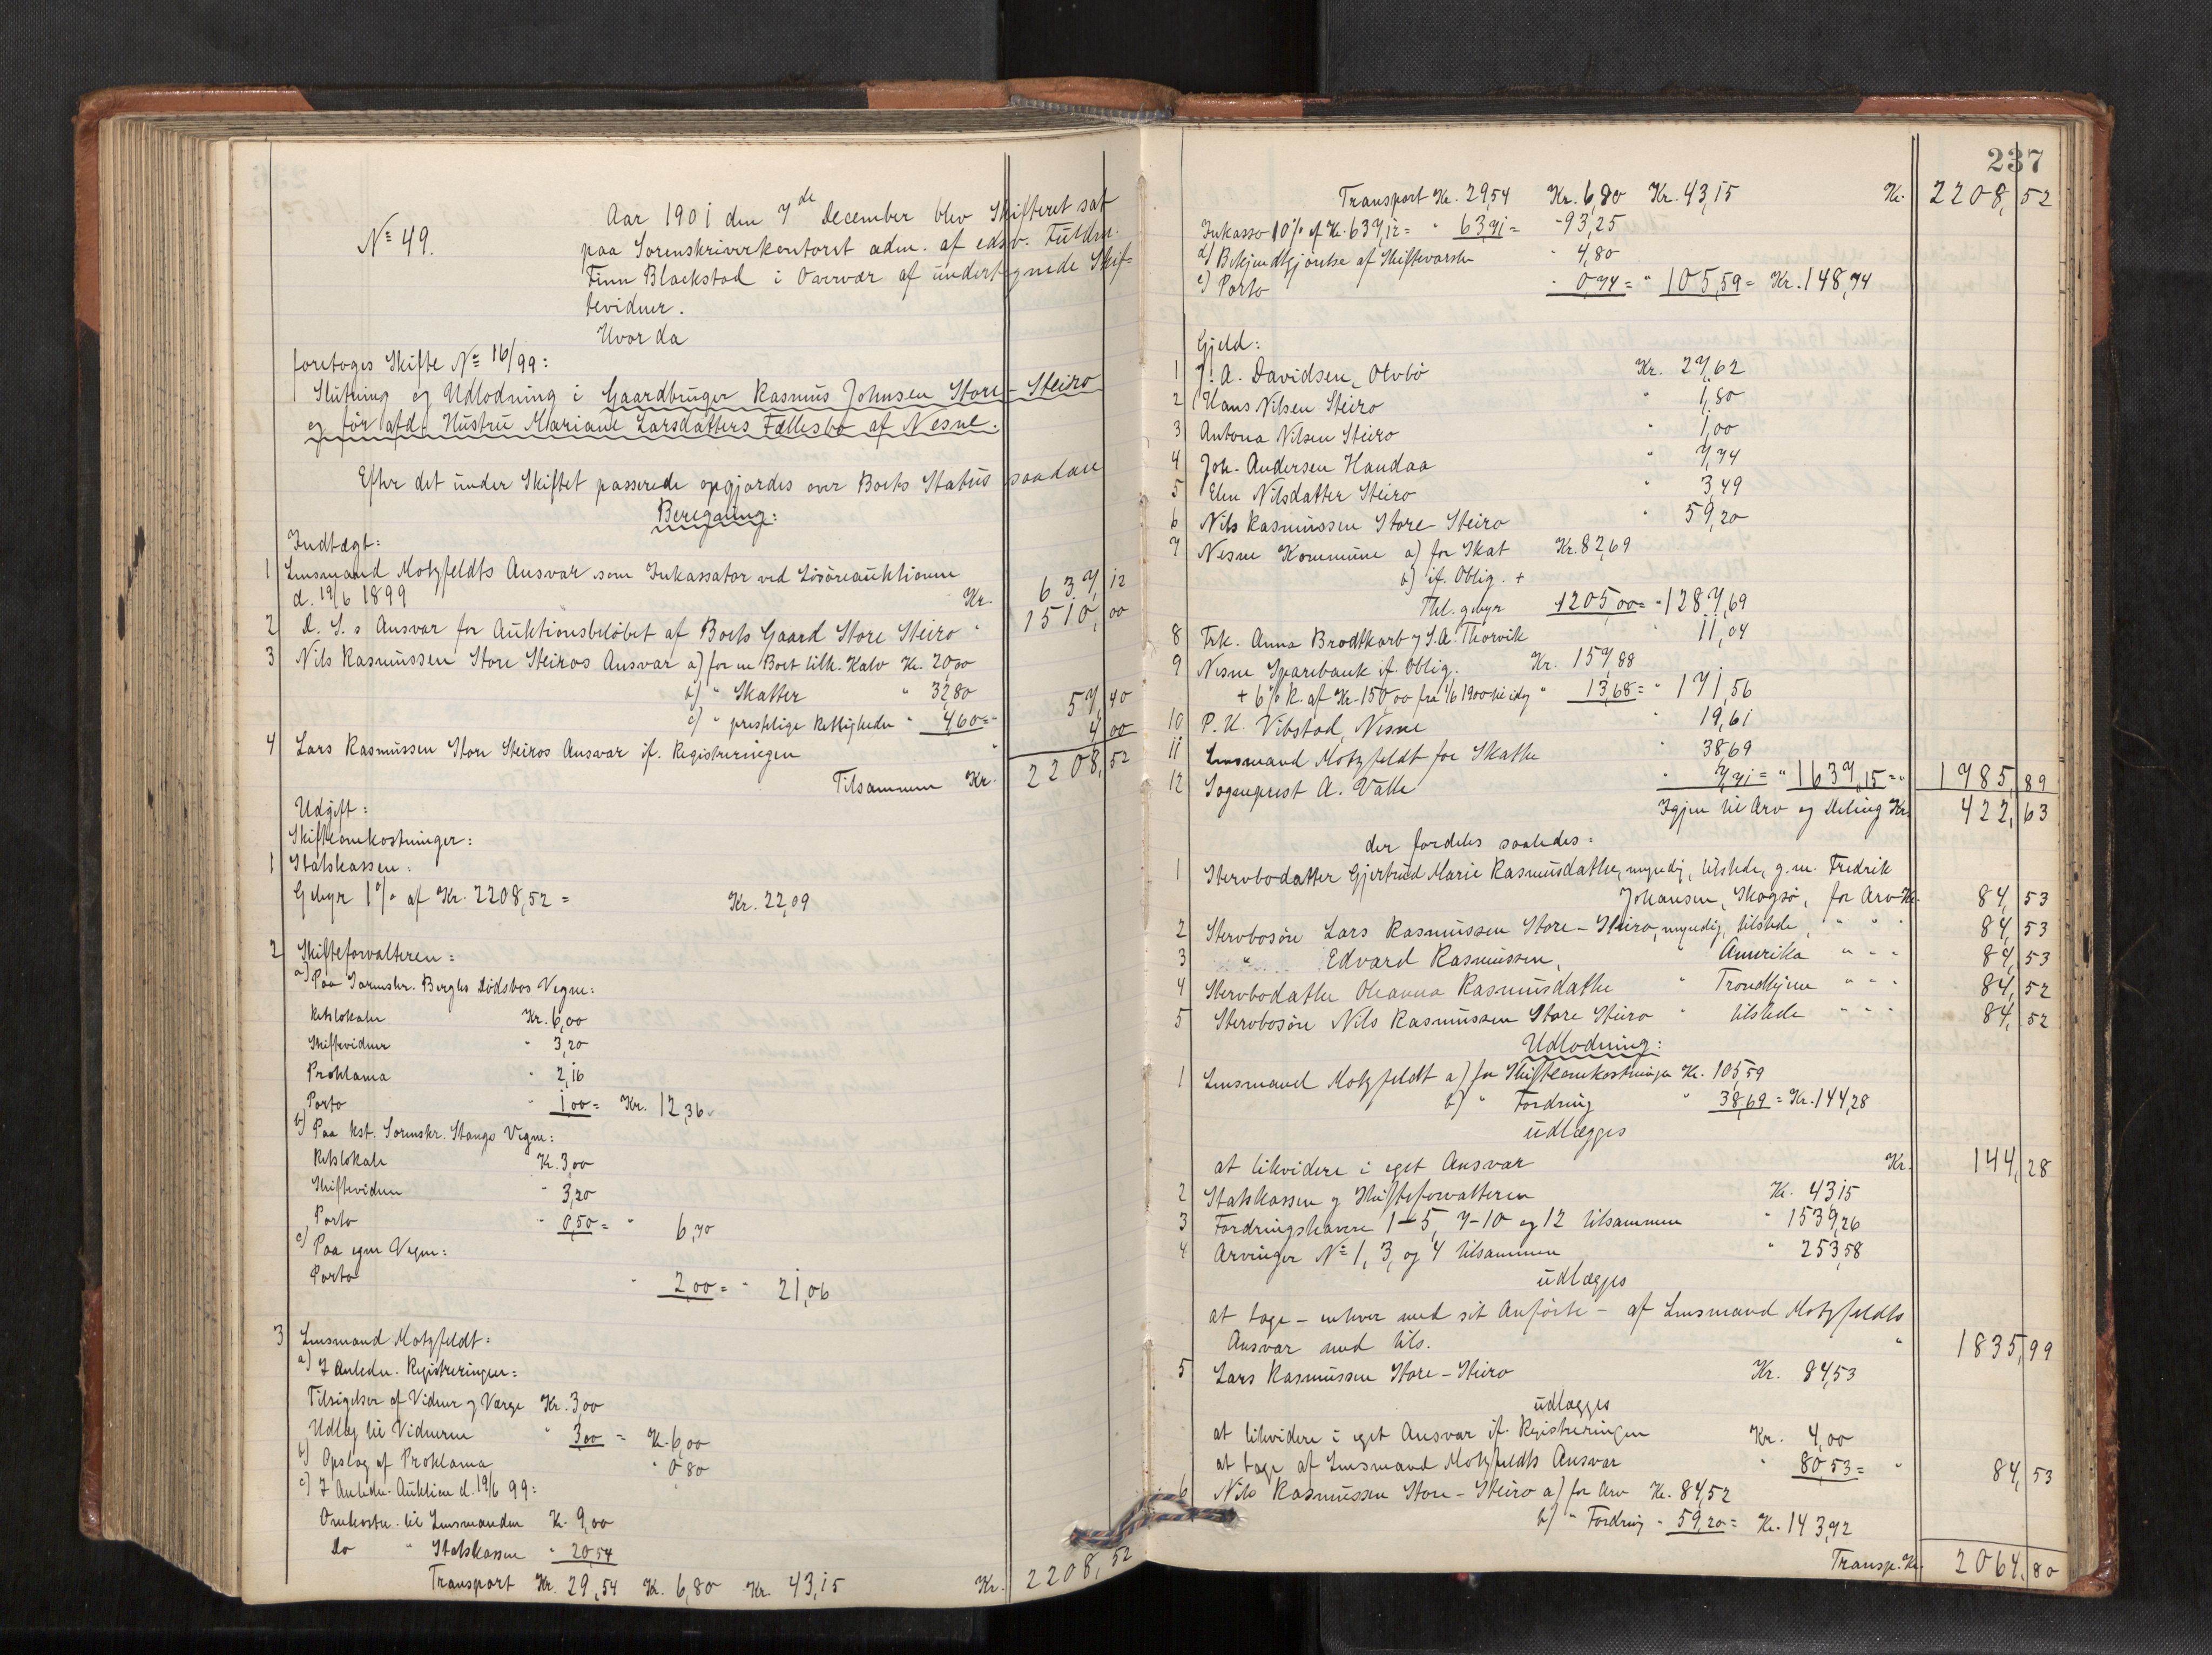 No 49.
Aar 1901 den 7de December blev Skifteret sat
paa Sorenskriverkontoret adm. af edsv. Fuldm.
Finn Blackstad i Overvær af undertegnede Skif-
tevidner.
Hvorda
foretoges Skifte No 16/99:
Slutning og Udlodning i Gaardbruger Rasmus Johnsen Store-Steiro
og før afd. Hustru Mariane Larsdatters Fællesbo af Nesne.
Efter det under Skiftet passerede opgjordes over Boets Status saadan
Beregning:
Indtægt:
1 Lensmand Motzfeldts Ansvar som Inkassator ved Løsøreauktionen
d. 19/6 1899 Kr. 637,12
2 D. S.s Ansvar for Auktionsbeløbet af Boets Gaard Store Steiro " 1510,00
3 Nils Rasmussen Store Steiros Ansvar a) for en Boet tilh. Kalv Kr. 20,00
b) " Skatter " 32,80
c) " prestlige Rettigheder " 4,60 = " 57,40
4 Lars Rasmussen Store Steiros Ansvar if. Registreringen " 4,00
Tilsammen Kr. 2208,52
Udgift:
Skifteomkostninger:
1 Statskassen:
Gebyr 1% af Kr. 2208,52 = Kr. 22,09
2 Skifteforvalteren:
a) Paa Sorenskr. Berghs Dødsbos Vegne:
Retslokale Kr. 6,00
Skiftevidner " 3,20
Proklama " 2,16
Porto " 1,00 = Kr. 12,36
b) Paa kst. Sorenskr. Stangs Vegne:
Retslokale Kr. 3,00
Skiftevidner " 3,20
Porto " 0,50 = " 6,70
c) Paa egne Vegne:
Porto " 2,00 = " 21,06
3 Lensmand Motzfeldt:
a) I Anledn. Registreringen:
Tilsigelser af Vidner og Værge Kr. 3,00
Udlæg til Vidnerne " 3,00 = Kr. 6,00
b) Opslag af Proklama " 0,80
c) I Anledn. Auktion d. 19/6 99:
Omkostn. til Lensmanden Kr. 9,00
Do " Statskassen " 20,54
Transport Kr. 29,54 Kr. 6,80 Kr. 43,15 Kr. 2208,52
237
Transport Kr. 29,54 Kr. 6,80 Kr. 43,15 Kr. 2208,52
Inkasso 10% af Kr. 637,12 = " 63,71 = " 93,25
d) Bekjendtgjørelse af Skiftevarsler " 4,80
e) Porto " 0,74 = " 105,59 = Kr. 148,74
Gjeld:
1 J. A. Davidsen, Olvbø Kr. 27,62
2 Hans Nilsen Steiro " 1,80
3 Antona Nilsen Steiro " 1,00
4 Joh. Andersen Handaa " 7,74
5 Elen Nilsdatter Steiro " 3,49
6 Nils Rasmussen Store-Steiro " 59,20
7 Nesne Kommune a) for Skat Kr. 82,69
b) if. Oblig. +
Thl. gebyr 1205,00 = " 1287,69
8 Frk. Anna Brodtkorb og S. A. Thorvik " 11,04
9 Nesne Sparebank if. Oblig. Kr. 157,88
+ 6% R. af Kr. 150,00 fra 1/6 1900 til idag " 13,68 = " 171,56
10 P. U. Vibstad, Nesne " 19,61
11 Lensmand Motzfeldt for Skatter " 38,69
12 Sogneprest A. Valle " 7,71 = " 1637,15 = " 1785,89
Igjen til Arv og Deling Kr. 422,63
der fordeles saaledes:
1 Stervbodatter Gjertrud Marie Rasmusdatter, myndig, tilstede, g. m. Fredrik
Johansen, Skogsø, for Arv Kr. 84,53
2 Stervbosøn Lars Rasmussen Store-Steiro, myndig, tilstede, " " " 84,53
3 " Edvard Rasmussen, " Amerika " " " 84,53
4 Stervbodatter Oleanna Rasmusdatter " Trondhjem " " " 84,52
5 Stervbosøn Nils Rasmussen Store Steiro " tilstede " " " 84,52
Udlodning:
1 Lensmand Motzfeldt a) for Skifteomkostninger Kr. 105,59
b) " Fordring " 38,69 = Kr. 144,28
udlægges
at likvidere i eget Ansvar Kr. 144,28
2 Statskassen og Skifteforvalteren Kr. 43,15
3 Fordringshavere 1-5, 7-10 og 12 tilsammen " 1539,26
4 Arvinger No 1, 3, og 4 tilsammen " 253,58
udlægges
at tage - enhver med sit Anførte - af Lensmand Motzfeldts
Ansvar med tils. " 1835,99
5 Lars Rasmussen Store-Steiro Kr. 84,53
udlægges
at likvidere i eget Ansvar if. Registreringen Kr. 4,00
at tage af Lensmand Motzfeldts Ansvar " 80,53 = " 84,53
6 Nils Rasmussen Store-Steiro a) for Arv Kr. 84,52
b) " Fordring " 59,20 = Kr. 143,72
Transp. Kr. 2064,80